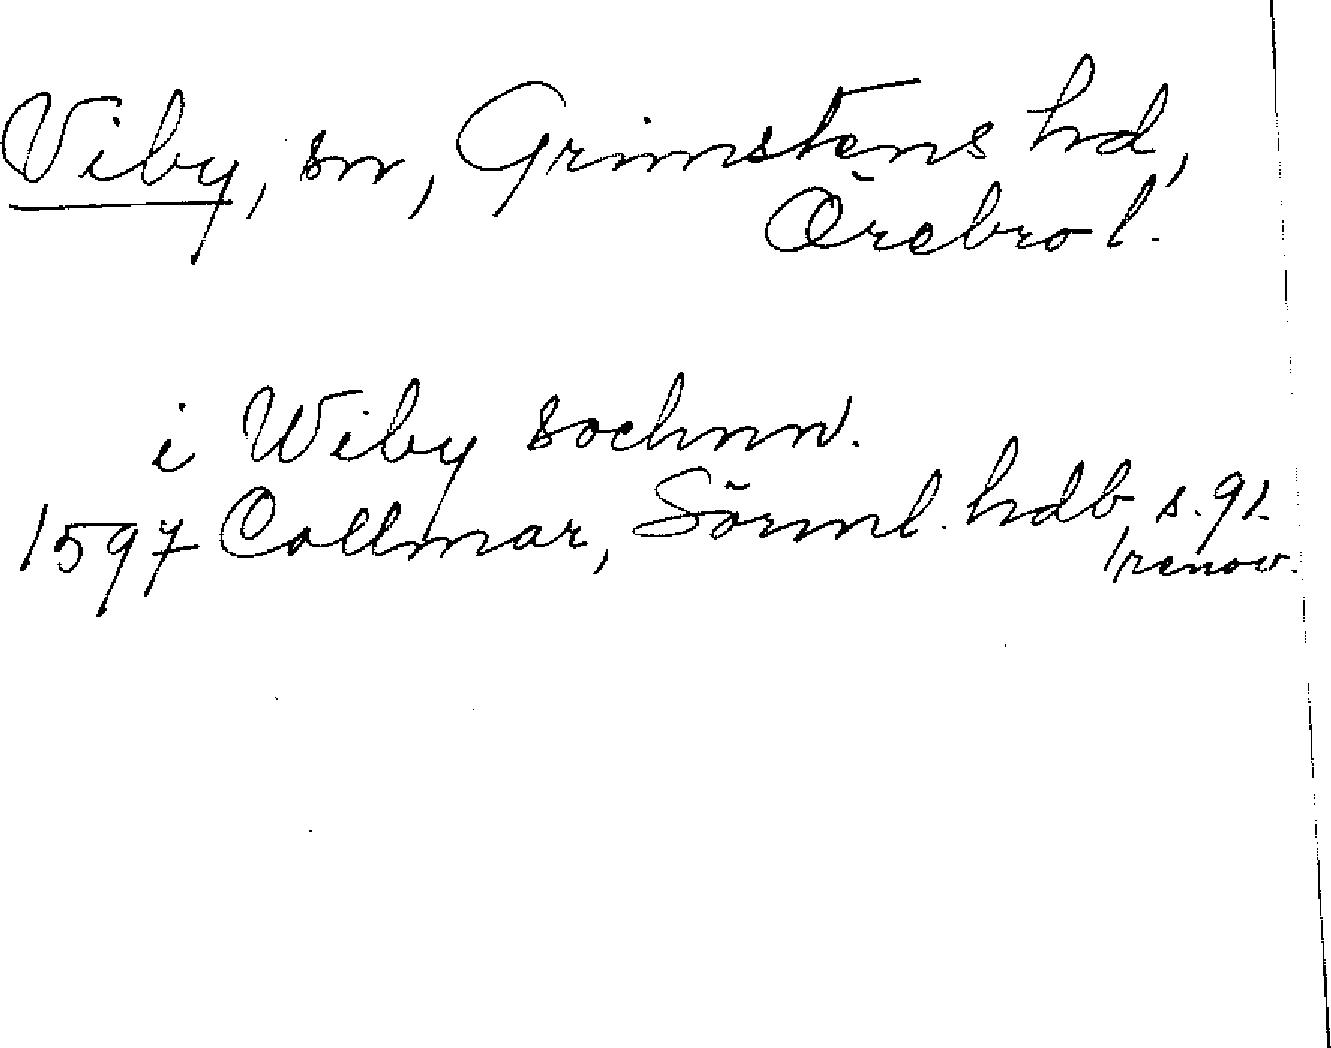 Viby, sn, Grimstens hd,
Örebro l.
i Wiby sochnn.
1597 Collmar, Sörml. hdb, s. 91.
/renov.